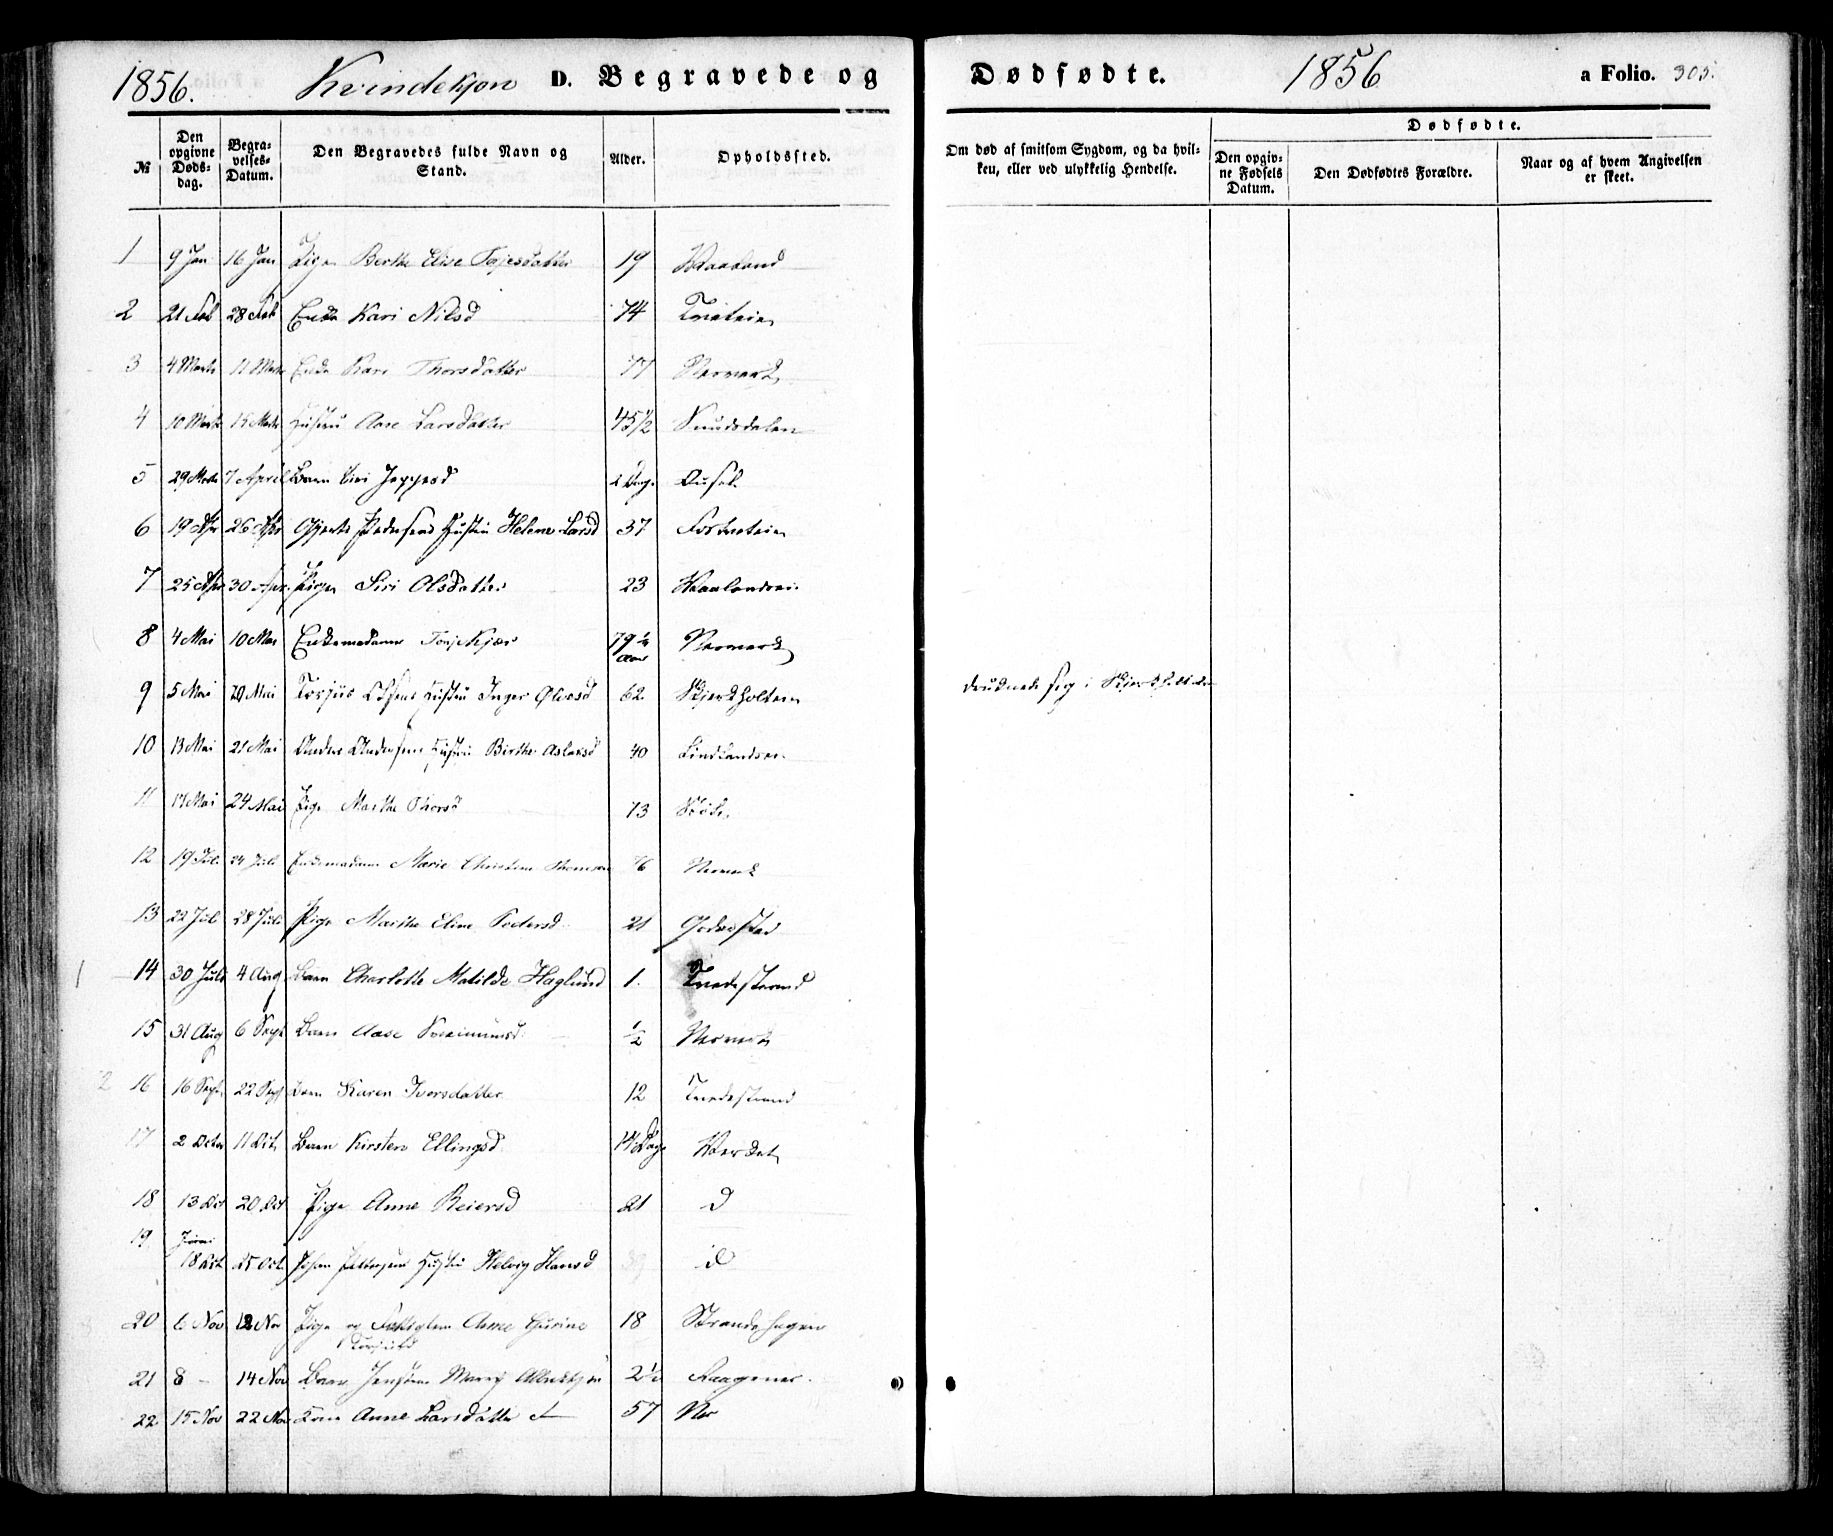 1856. Kvindekjøn D. Begravede og Dødfødte. 1856 a Folio. 305.
№
Den opgivne Døds-dag.
Begra-velses-Datum.
Den Begravedes fulde Navn og Stand.
Alder.
Opholdssted.
Om død af smitsom Sygdom, og da hvil-ken, eller ved ulykkelig Hendelse.
Dødfødte.
Den opgiv-ne Fødsels Datum.
Den Dødfødtes Forældre.
Naar og af hvem Angivelsen er skeet.
1 9 Jan 16 Jan Pige Berthe Elise Tarjesdatter 19 Waaland
2 21 Feb 28 Feb Enke Kari Nilsd 74
3 4 Marts 11 Marts Enke Kari Thorsdatter 77 Nesverk
4 10 Marts 15 Marts Hustru Aase Larsdatter 45 1/2 Knudsdalen
5 29 Marts 7 April Barn Siri Jeppesd 2 Dage
6 19 Apr 26 Apr Gjerts Pedersens Hustru Helene Larsd 37
7 25 Apr 30 Apr. Pige Siri Olsdatter 23
8 4 Mai 10 Mai Enkemadame Kjær 79 1/2 Aar Nesverk
9 5 Mai Mai Torjus Hustru Inger Olevsd 62 Skjerkholten druknede sig i
10 13 Mai 21 Mai Anders Andersens Hustru Birthe Aslaksd 40
11 17 Mai 24 Mai Pige Marthe Thorsd 73
12 19 Juli 24 Juli Enkemadame Marie Christine 76 Nesverk
13 22 Juli 28 Juli Pige Marthe Eline Pedersd 21 Goderstad
1 14 30 Juli 4 Aug Barn Charlotte Matilde Haglund 1. Tvedestrand
15 31 Aug 6 Sept Barn Aase 1/2 Nesverk
2 16 16 Sept 22 Sept Barn Karen Iversdatter 12 Tvedestrand
17 2 Octor 11 Oct Barn Kirsten Ellingsd 14 Dage Verket
18 13 Oct 20 Oct Pige Anne Reiersd 21 d
19 18 Oct 25 Oct Johan Hustru Helvig Hansd id
20 6 Nov 12 Nov Pige og Anne Gurine 18 Strandehagen
21 8 – 14 Nov Barn 2 1/2
22 15 Nov 22 Nov Kone Anne Larsdatter 57 Nes